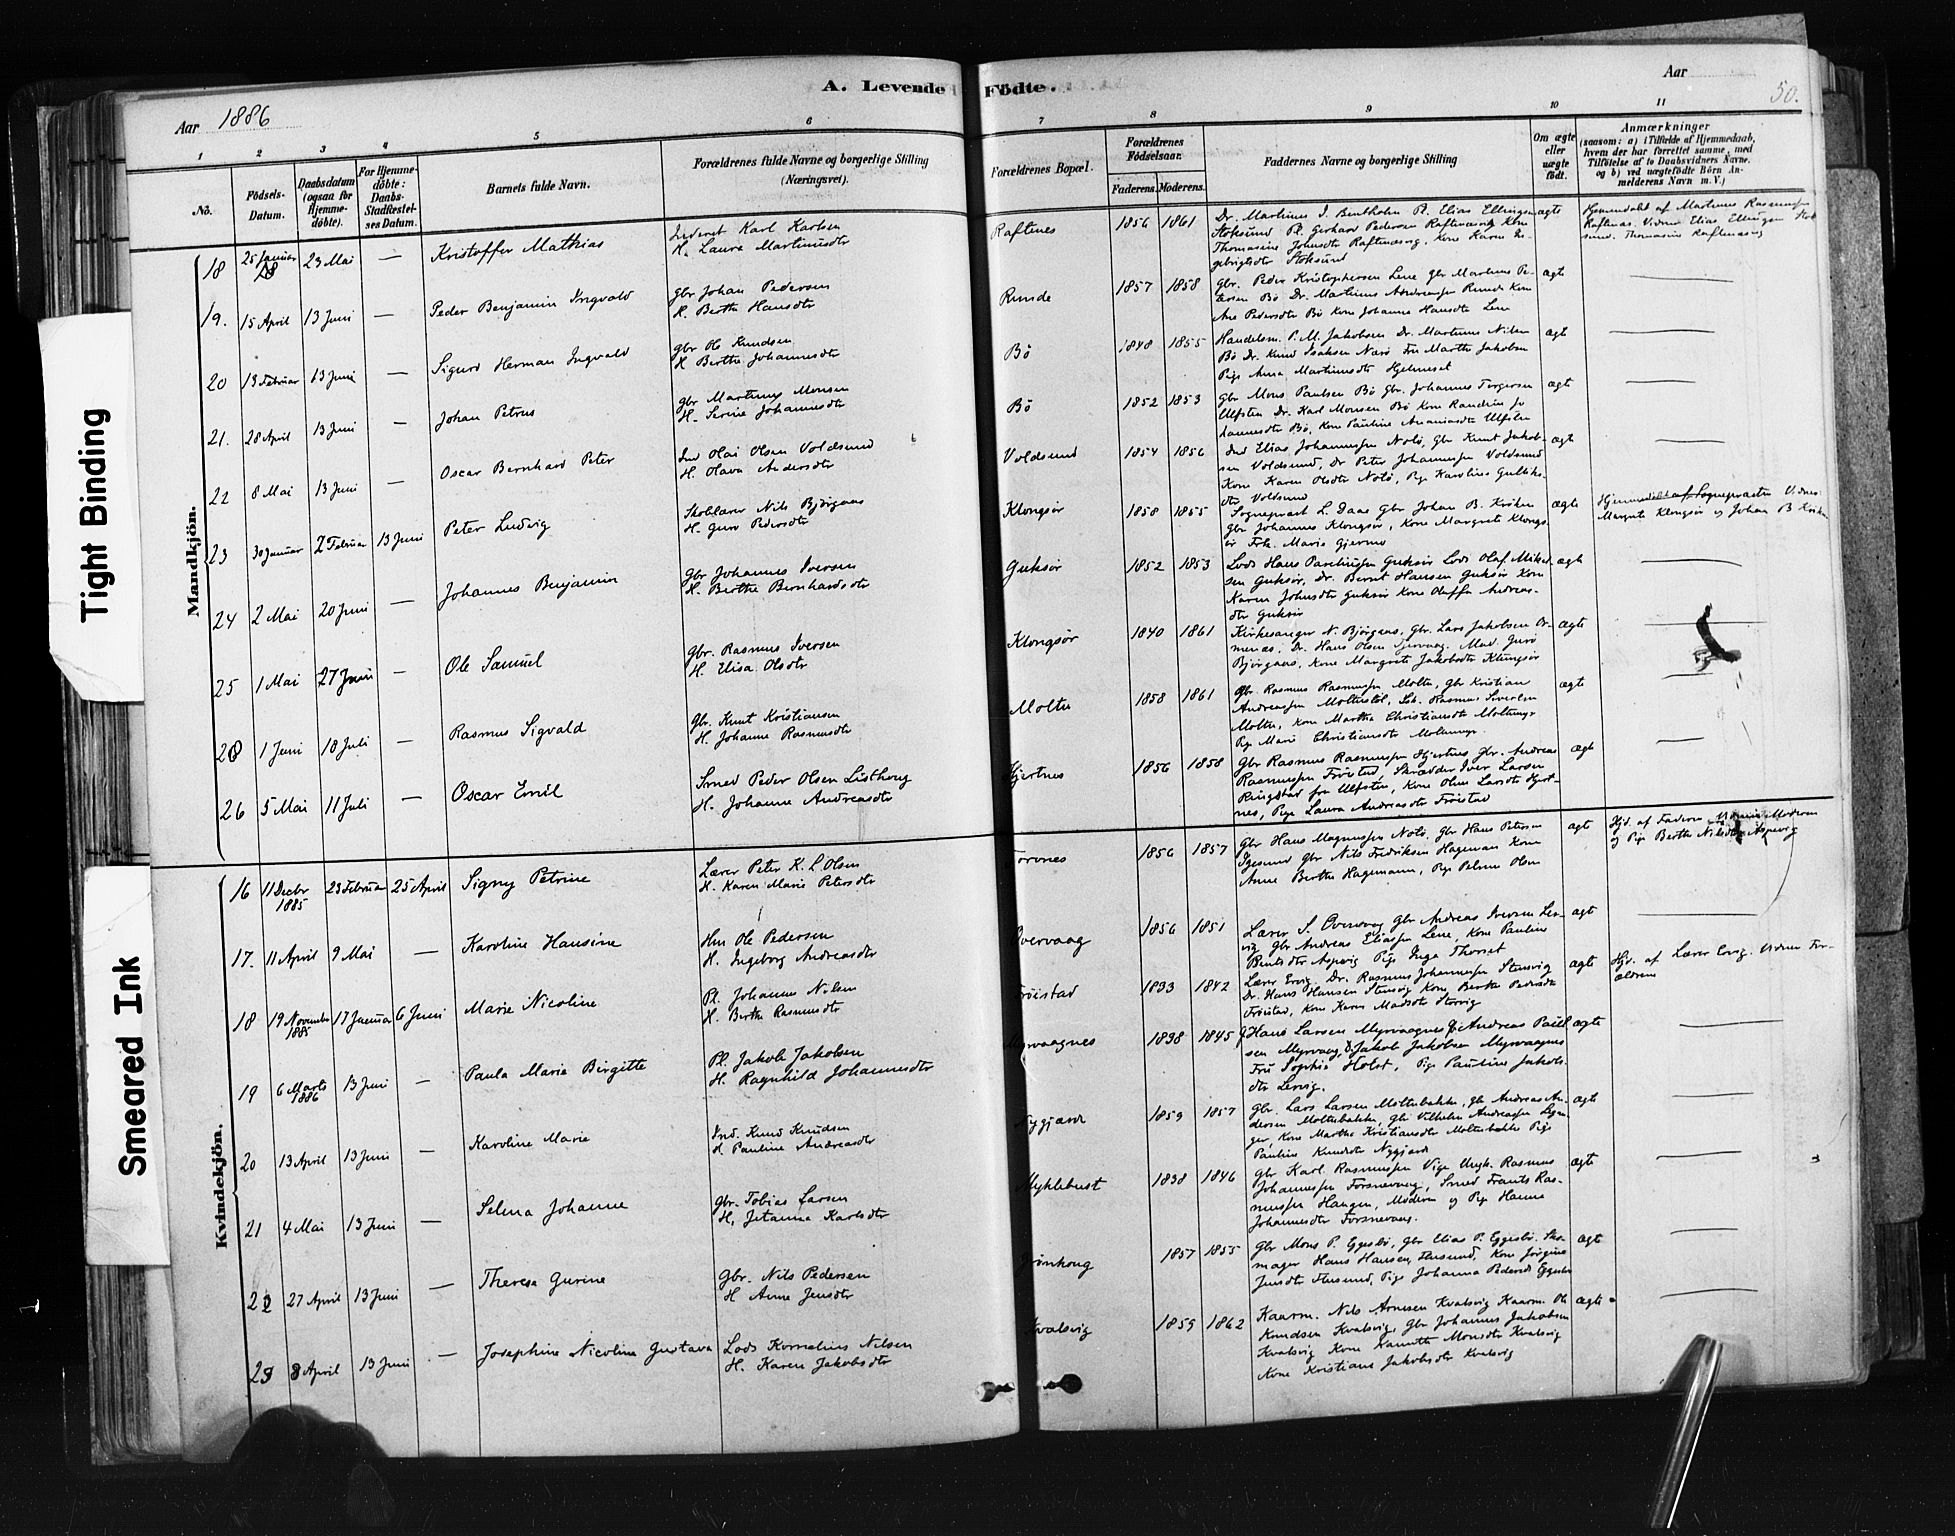 Tight Binding
Smeared Ink
A. Levende Fødte.
Aar 1886
Aar
50.
1 2 3 4 5 6 7 8 9 10 11
No.
Fødsels-Datum.
Daabsdatum (ogsaa for Hjemme-døbte).
For Hjemme-døbte: Daabs-Stadfæstel-ses Datum.
Barnets fulde Navn.
Forældrenes fulde Navne og borgerlige Stilling (Næringsvei).
Forældrenes Bopæl.
Forældrenes Fødselsaar.
Faderens. Moderens.
Faddernes Navne og borgerlige Stilling
Om ægte eller uægte født.
Anmærkninger
(saasom: a) i Tilfælde af Hjemmedaab,
hvem der har forrettet samme, med
Tilføielse af to Daabsvidners Navne.
og b) ved uægtefødte Børn An-
melderens Navn m. V.)
Mandkjön.
18 25 Januar 23 Mai — Kristoffer Mathias
Inderst Karl Karlsen
H. Laura Martinusdtr
Raftenes 1856 1861
Dr. Martinus I. Bentholm Pl. Elias Ellingsen
Stoksund Pl. Gerhard Pedersen
gebrigtsdtr Stoksund
ægte
Hjemmedøbt af Martinus Rasmussen
Raftenes. Vidner Elias Ellingsen Stok
sund. Thomasine Raftenes
19. 15 April 13 Juni — Peder Benjamin Ingvald
Gbr Johan Pedersen
H. Berthe Hansdtr
Runde 1857 1858
Gbr. Peder Kristophersen Lene Gbr Martinus Pe-
dersen Bø Dr. Martinus Andreassen Runde Kone
Ane Pedersdtr Bø Kone Johanne Hansdtr Lene
ægte
20 13 Februar 13 Juni — Sigurd Herman Ingvald
Gbr Ole Knudsen
H Berthe Johannesdtr
Bö 1848 1855
Handelsm. P. M. Jakobsen Dr. Martinus Nilsen
Bö Dr. Knud Isaksen Nærø Fru Marthe Jakobsen
Pige Anna Martinusdtr
ægte
21. 28 April 13 Juni — Johan Petrus
Gbr Martinus Monsen
H. Serine Johannesdtr
Bö 1852 1853
Gbr Mons Paulsen Bö Gbr. Johannes Torgersen
Ulfsten Dr. Karl Monsen Bö Kone Randine Jo
hannesdtr Bö, Kone Pauline Ananiasdtr Ulfsten
ægte
22 8 Mai 13 Juni — Oscar Bernhard Peter
Ind Olai Olsen Voldsund
H. Olava Andersdtr
Voldsund 1854 1856
Ind Elias Johannessen Notö, Gbr Knut Jakob-
sen Voldsund, Dr Peter Johannessen Voldsund
Kone Karen Olsdtr Notö, Pige Karoline Gulliks-
dtr Voldsund
ægte
23 30 Januar 2 Februar 13 Juni Peter Ludvig
Skolelærer Nils Björgaas
H. Guro Pedersdtr
Klongsør 1858 1855
Sognepræst L. Daae Gbr Johan B. Kroken
Gbr Johannes Klongsør, Kone Margrete Klongs-
ör Frk. Marie Gjermo
ægte
Hjemmedøbt af Sognepræsten Vidner
Margrete Klongsør og Johan B Kroken
24 2 Mai 20 Juni — Johannes Benjamin
Gbr Johannes Iversen
H. Berthe Bernhardsdtr
Gurskør 1852 1853
Lods Hans Lods Olaf Mikel-
sen Dr. Bernt Hansen Kone
Karen Johnsdtr Kone Oluffa Andreas-
dtr
ægte
25 1 Mai 27 Juni — Ole Samuel
Gbr. Rasmus Iversen
H. Elisa Olsdtr
Klongsør 1840 1861
Kirkesanger N. Björgaas, Gbr. Lars Jakobsen Or-
menæs, Dr. Hans Olsen Mad. Guro
Björgaas, Kone Margrete Jakobsdtr Klungsør
ægte
26 1 Juni 18 Juli — Rasmus Sigvald
Gbr. Knut Kristiansen
H. Johanne Rasmusdtr
Moltu 1858 1861
Gbr. Rasmus Rasmussen Moltu, Gbr Kristian
Andreassen Rasmus Sivertsen
Moltu, Kone Marthe Christiansdtr
Pige Marie Christiansdtr
ægte
26 5 Mai 11 Juli — Oscar Emil
Smed Peder Olsen Listhoug
H. Johanne Andreasdtr
Hjertnes 1856 1858
Gbr Rasmus Rasmussen Hjertnes Gbr. Andreas
Rasmussen Fröistad, Skrædder Iver Larsen
Ringstad fra Ulfsten, Kone Oline Larsdtr Hjert-
nes, Pige Laura Andreasdtr Fröistad
ægte
Kvindekjön.
16 11 Decbr 1885 23 Februar 25 April Signy Petrine
Lærer Peter K. L Olsen
H. Karen Marie Petersdtr
1856 1857
Gbr Hans Magnussen Notö, Gbr Hans Petersen
Igesund Gbr Nils Fredriksen Hageman Kone
Anne Berthe Hagemann, Pige Petrine Olsen
ægte
Hjd. af Faderen Moderen
og Pige Berthe Nilsdtr Aspevig
17. 11 April 9 Mai — Karoline Hansine
Hm Ole Pedersen
H. Ingeborg Andreasdtr
Overvaag 1856 1851
Lærer S. Overvaag Gbr Andreas Iversen Ler-
vig, Gbr Andreas Eliassen Lene, Kone Pauline
Bentsdtr Aspevig Pige Inga Thorset
ægte
18 19 November 1885 17 Januar 6 Juni Marie Nicoline
Pl. Johannes Nilsen
H. Berthe Rasmusdtr
Fröistad 1833 1842
Lærer Ervig, Dr. Rasmus Johannessen Stensvig
Dr. Hans Hansen Stensvig Kone Berthe Pedersdtr
Fröistad, Kone Karen Madsdtr Storvig
ægte
Hjd. af Lærer Ervig. Vidner For-
ældrene
19 6 Marts 1886 13 Juni — Paula Marie Birgitte
Pl. Jakob Jakobsen
H. Ragnhild Johannesdtr
Myrvaagnes 1838 1845
Hans Larsen Myrvaagnes Andreas Paul-
sen Myrvaag, Jakob Jakobsen Myrvaagnes
Fru Sophie Holst, Pige Pauline Jakobs-
dtr Lervig.
ægte
20 13 April 13 Juni — Karoline Marie
Ind. Knud Knudsen
H Pauline Andreasdtr
Nygjærde 1859 1857
Gbr. Lars Larsen Moltubakke, Gbr Andreas An-
dersen Moltubakke, Gbr Vilhelm Andreassen
Kone Marthe Kristiansdtr Moltubakke Pige
Pauline Knudsdtr Nygjærde
ægte
21 4 Mai 13 Juni — Selma Johanne
Gbr. Tobias Larsen
H. Jetanna Karlsdtr
Myklebust 1838 1846
Gbr Karl Rasmussen Vige Ungk. Rasmus
Johannessen Torsnevaag, Smed Frants Ras-
mussen Haugen, Moderen og Pige Hanna
Johannesdtr Torsnevaag.
ægte
22 27 April 13 Juni — Theresa Gurine
Gbr. Nils Pedersen
H Anne Jensdtr
Grönhoug 1857 1855
Gbr Mons P. Eggesbö, Gbr Elias P. Eggesbö, Sko-
mager Hans Hansen, Flusund, Kone Jörgine
Jensdtr Flusund, Pige Johanna Pedersdtr Eggesbö
ægte
23 8 April 13 Juni — Josephine Nicoline Gustava
Lods Kornelius Nilsen
H. Karen Jakobsdtr
Kvalsvig 1859 1862
Kaarm. Nils Arnesen Kvalsvig Kaarm. Ole
Knudsen Kvalsvig, Gbr Johannes Jakobsen
Kvalsvig Kone Monsdtr Kvalsvig
Kone Kristiane Jakobsdtr Kvalsvig
ægte